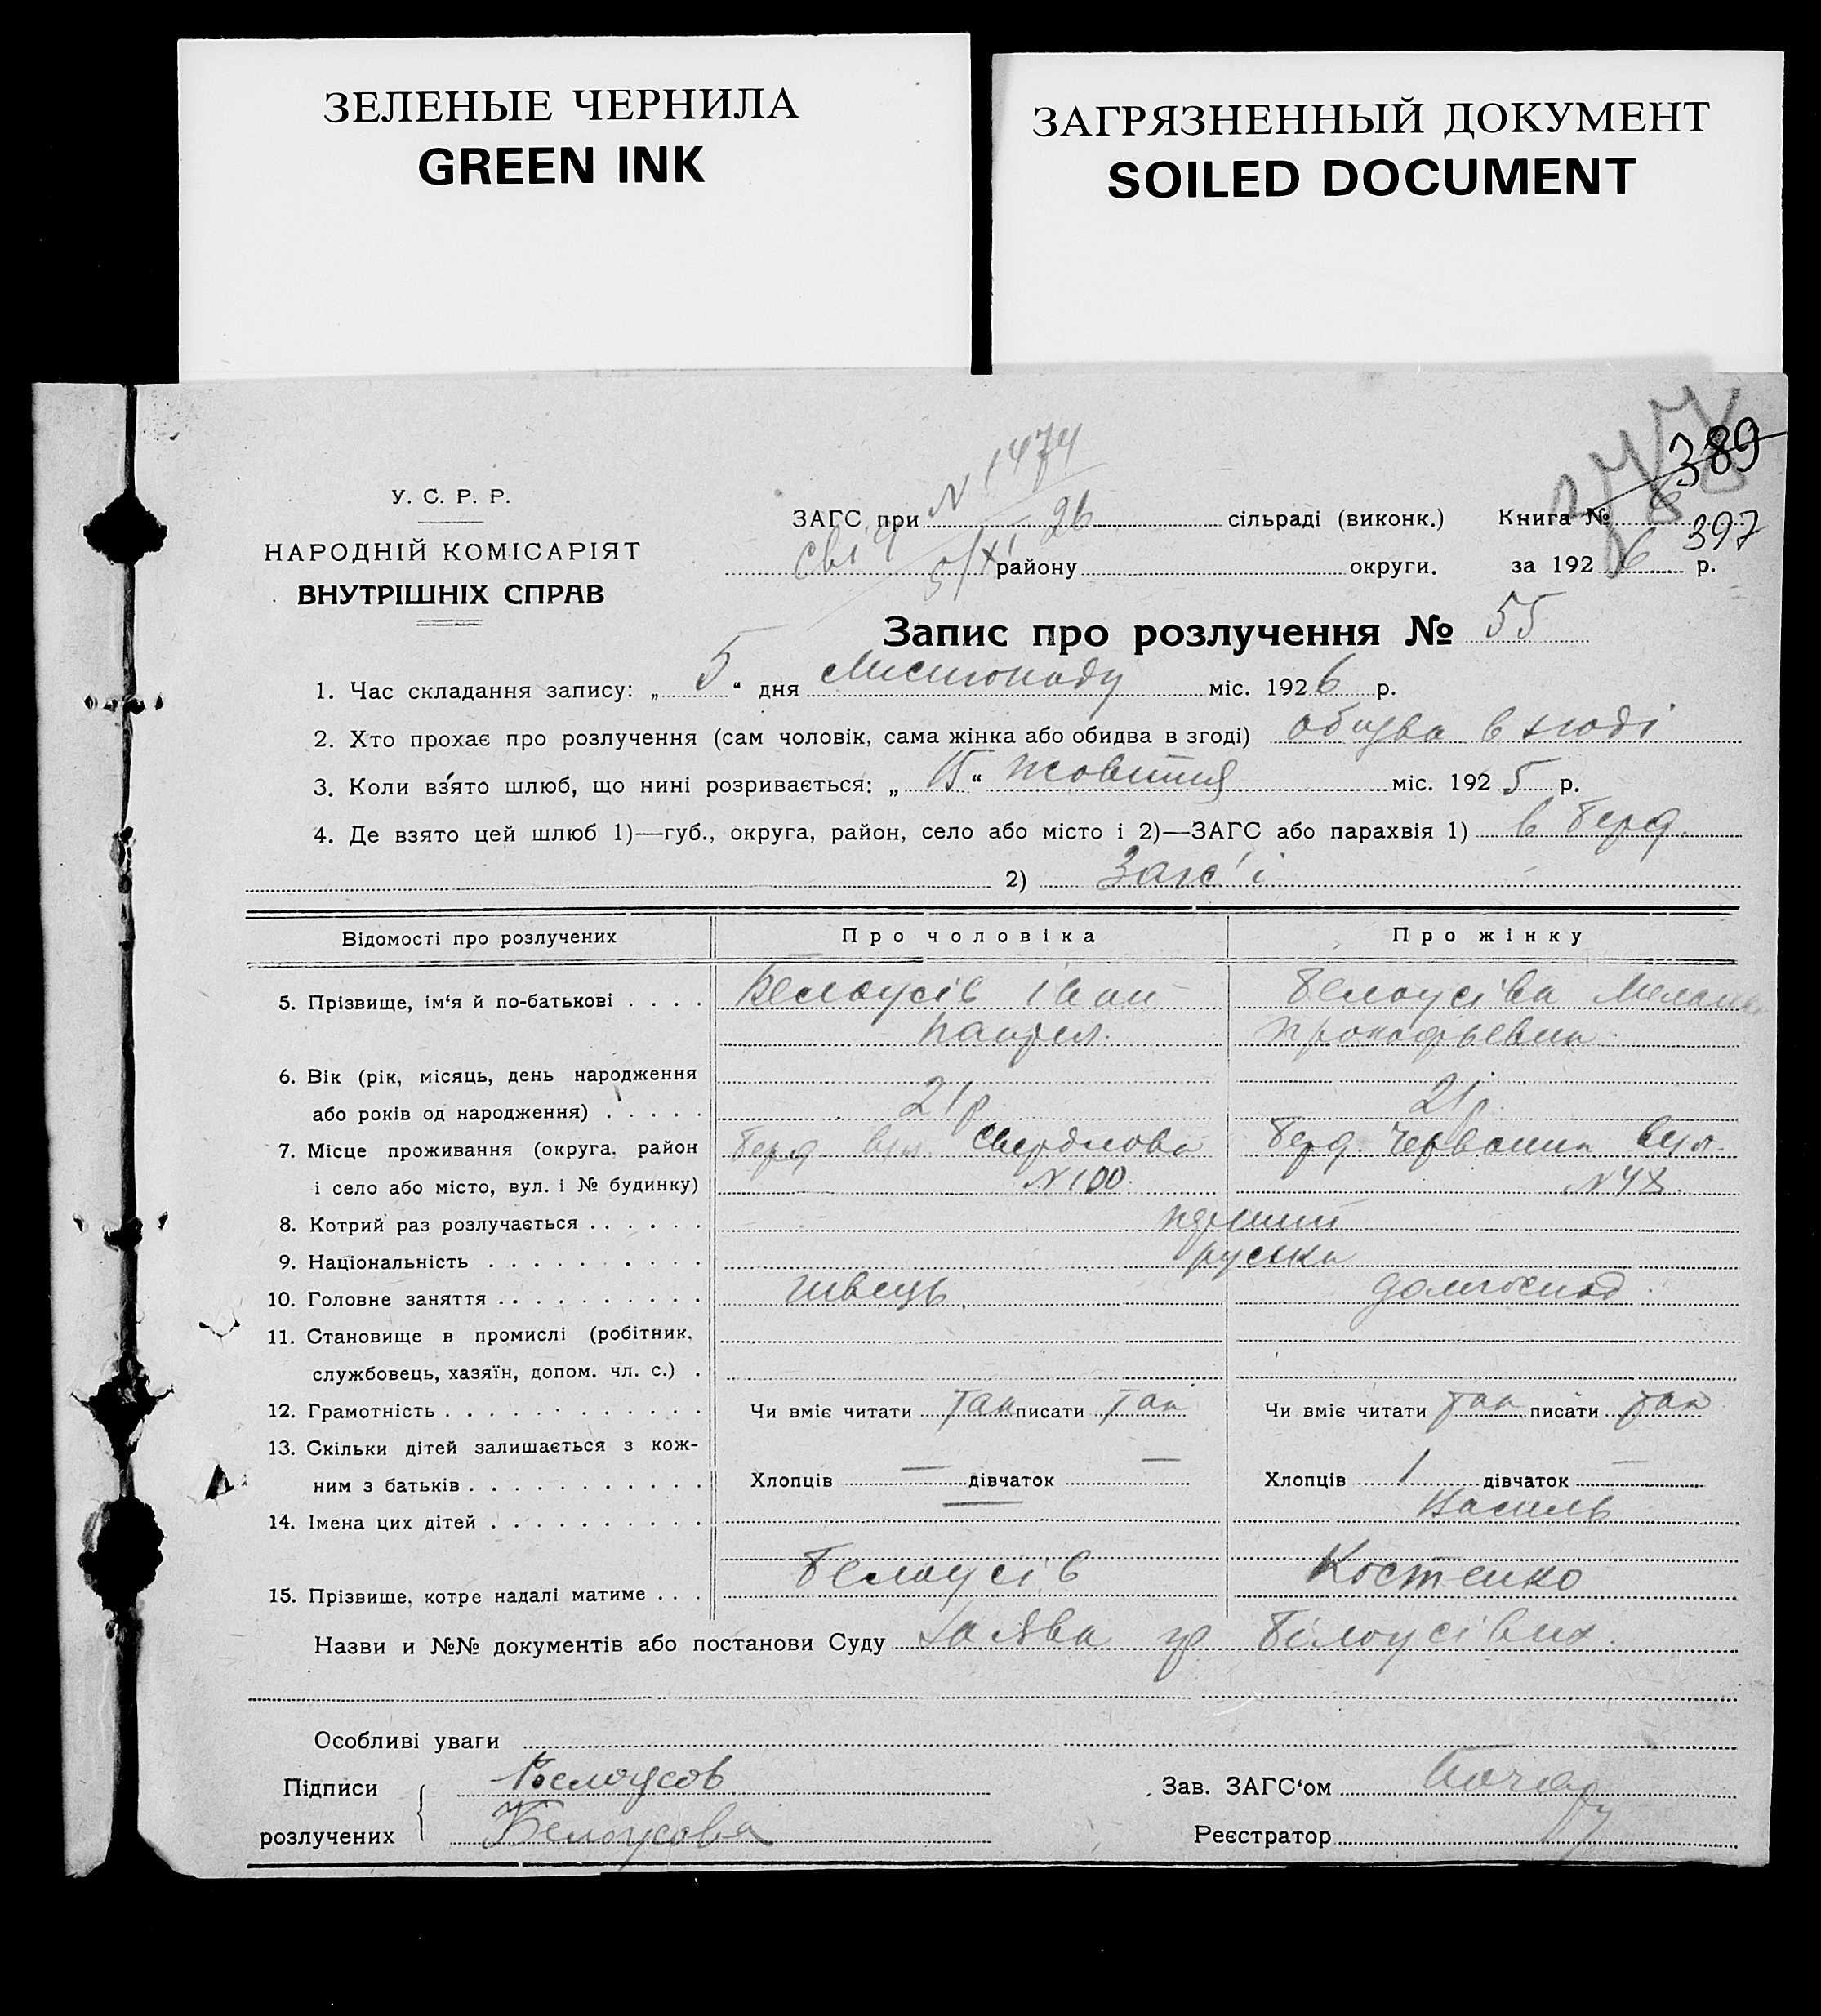 ЗЕЛЕНЫЕ ЧЕРНИЛА
GREEN INK
ЗАГРЯЗНЕННЫЙ ДОКУМЕНТ
SOILED DOCUMENT
389
397
У. С. Р. Р.
НАРОДНІЙ КОМІСАРІЯТ
ВНУТРІШНІХ СПРАВ
N 1474
ЗАГС при 26 сільраді (виконк.) Книга № 6
5/XI району округи. за 1926 р.
Запис про розлучення № 55
1. Час складання запису: „ 5 “ дня Листопаду міс. 1926 р.
2. Хто прохає про розлучення (сам чоловік, сама жінка або обидва в згоді) обидва в згоді
3. Коли взя́то шлюб, що нині розривається: „ 15 “ жовтня міс. 1925 р.
4. Де взято цей шлюб 1)—губ., округа, район, село або місто і 2)—ЗАГС або парахвія 1) в Берд.
2) Загс'і
Відомості про розлучених Про чоловіка Про жінку
5. Прізвище, ім'я й по-батькові . . . . Белоусів Іван Белоусіва
Прокофьевна
6. Вік (рік, місяць, день народження
або років од народження) . . . . . 21 р 21 р.
7. Місце проживання (округа, район Берд вул. Свердлова Берд. Червонна вул.
і село або місто, вул. і № будинку) N 100. N 48.
8. Котрий раз розлучається . . . . . . перший
9. Національність . . . . . . . . . . руська
10. Головне заняття . . . . . . . . . . швець. домгоспод.
11. Становище в промислі (робітник,
службовець, хазяїн, допом. чл. с.) .
12. Грамотність . . . . . . . . . . . . Чи вміє читати так писати так Чи вміє читати так писати так
13. Скільки дітей залишається з кож-
ним з батьків . . . . . . . . . . . Хлопців — дівчаток — Хлопців 1 дівчаток —
14. Імена цих дітей . . . . . . . . . . — Василь
15. Прізвище, котре надалі матиме . . . Белоусів Костенко
Назви и №№ документів або постанови Суду Заява гр Білоусівих.
Особливі уваги
Підписи Белоусов Зав. ЗАГС'ом
розлучених Белоусова Реєстратор